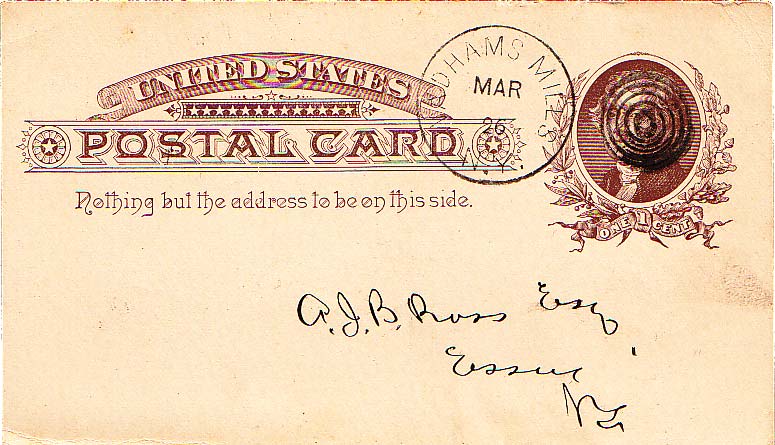 UNITED STATES
POSTAL CARD
Nothing but the address to be on this side.
DHAMS MILLS
MAR
26
N.Y.
ONE 1 CENT
A. J. B. Ross Esq
Essex
NY